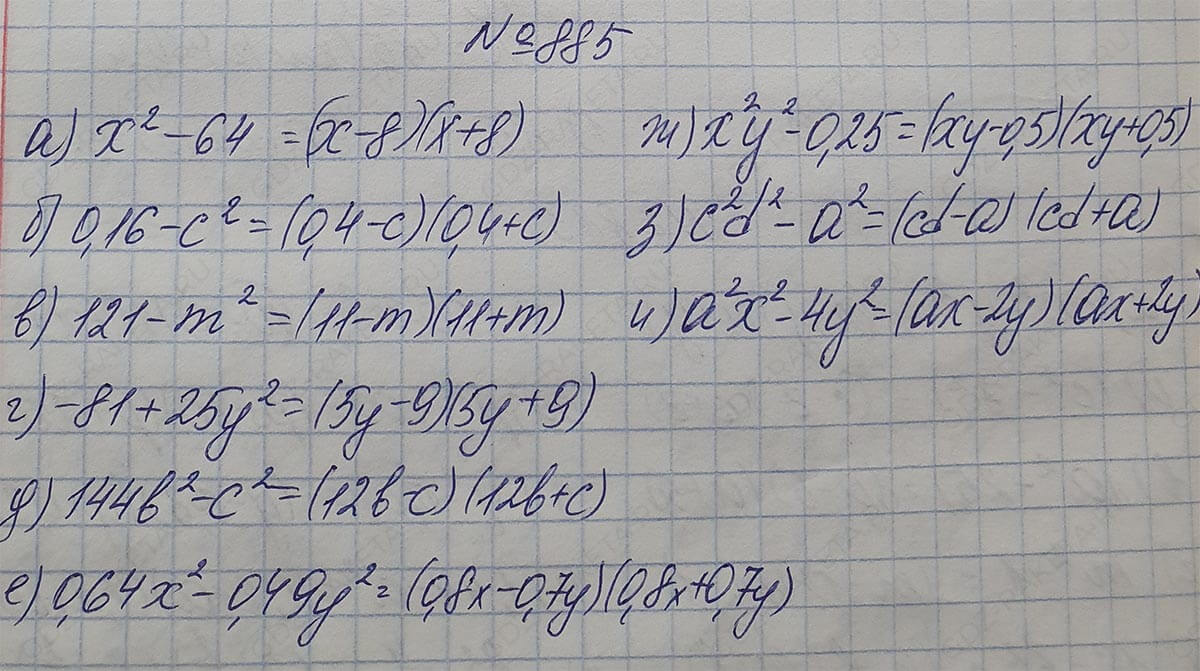 №885
а) x² - 64 = (x-8)(x+8)
б) 0,16 - c² = (0,4-c)(0,4+c)
в) 121 - m² = (11-m)(11+m)
г) -81 + 25y² = (5y-9)(5y+9)
д) 144b² - c² = (12b-c)(12b+c)
е) 0,64x² - 0,49y² = (0,8x-0,7y)(0,8x+0,7y)
ж) x²y² - 0,25 = (xy-0,5)(xy+0,5)
з) c²d² - a² = (cd-a)(cd+a)
и) a²x² - 4y² = (ax-2y)(ax+2y)